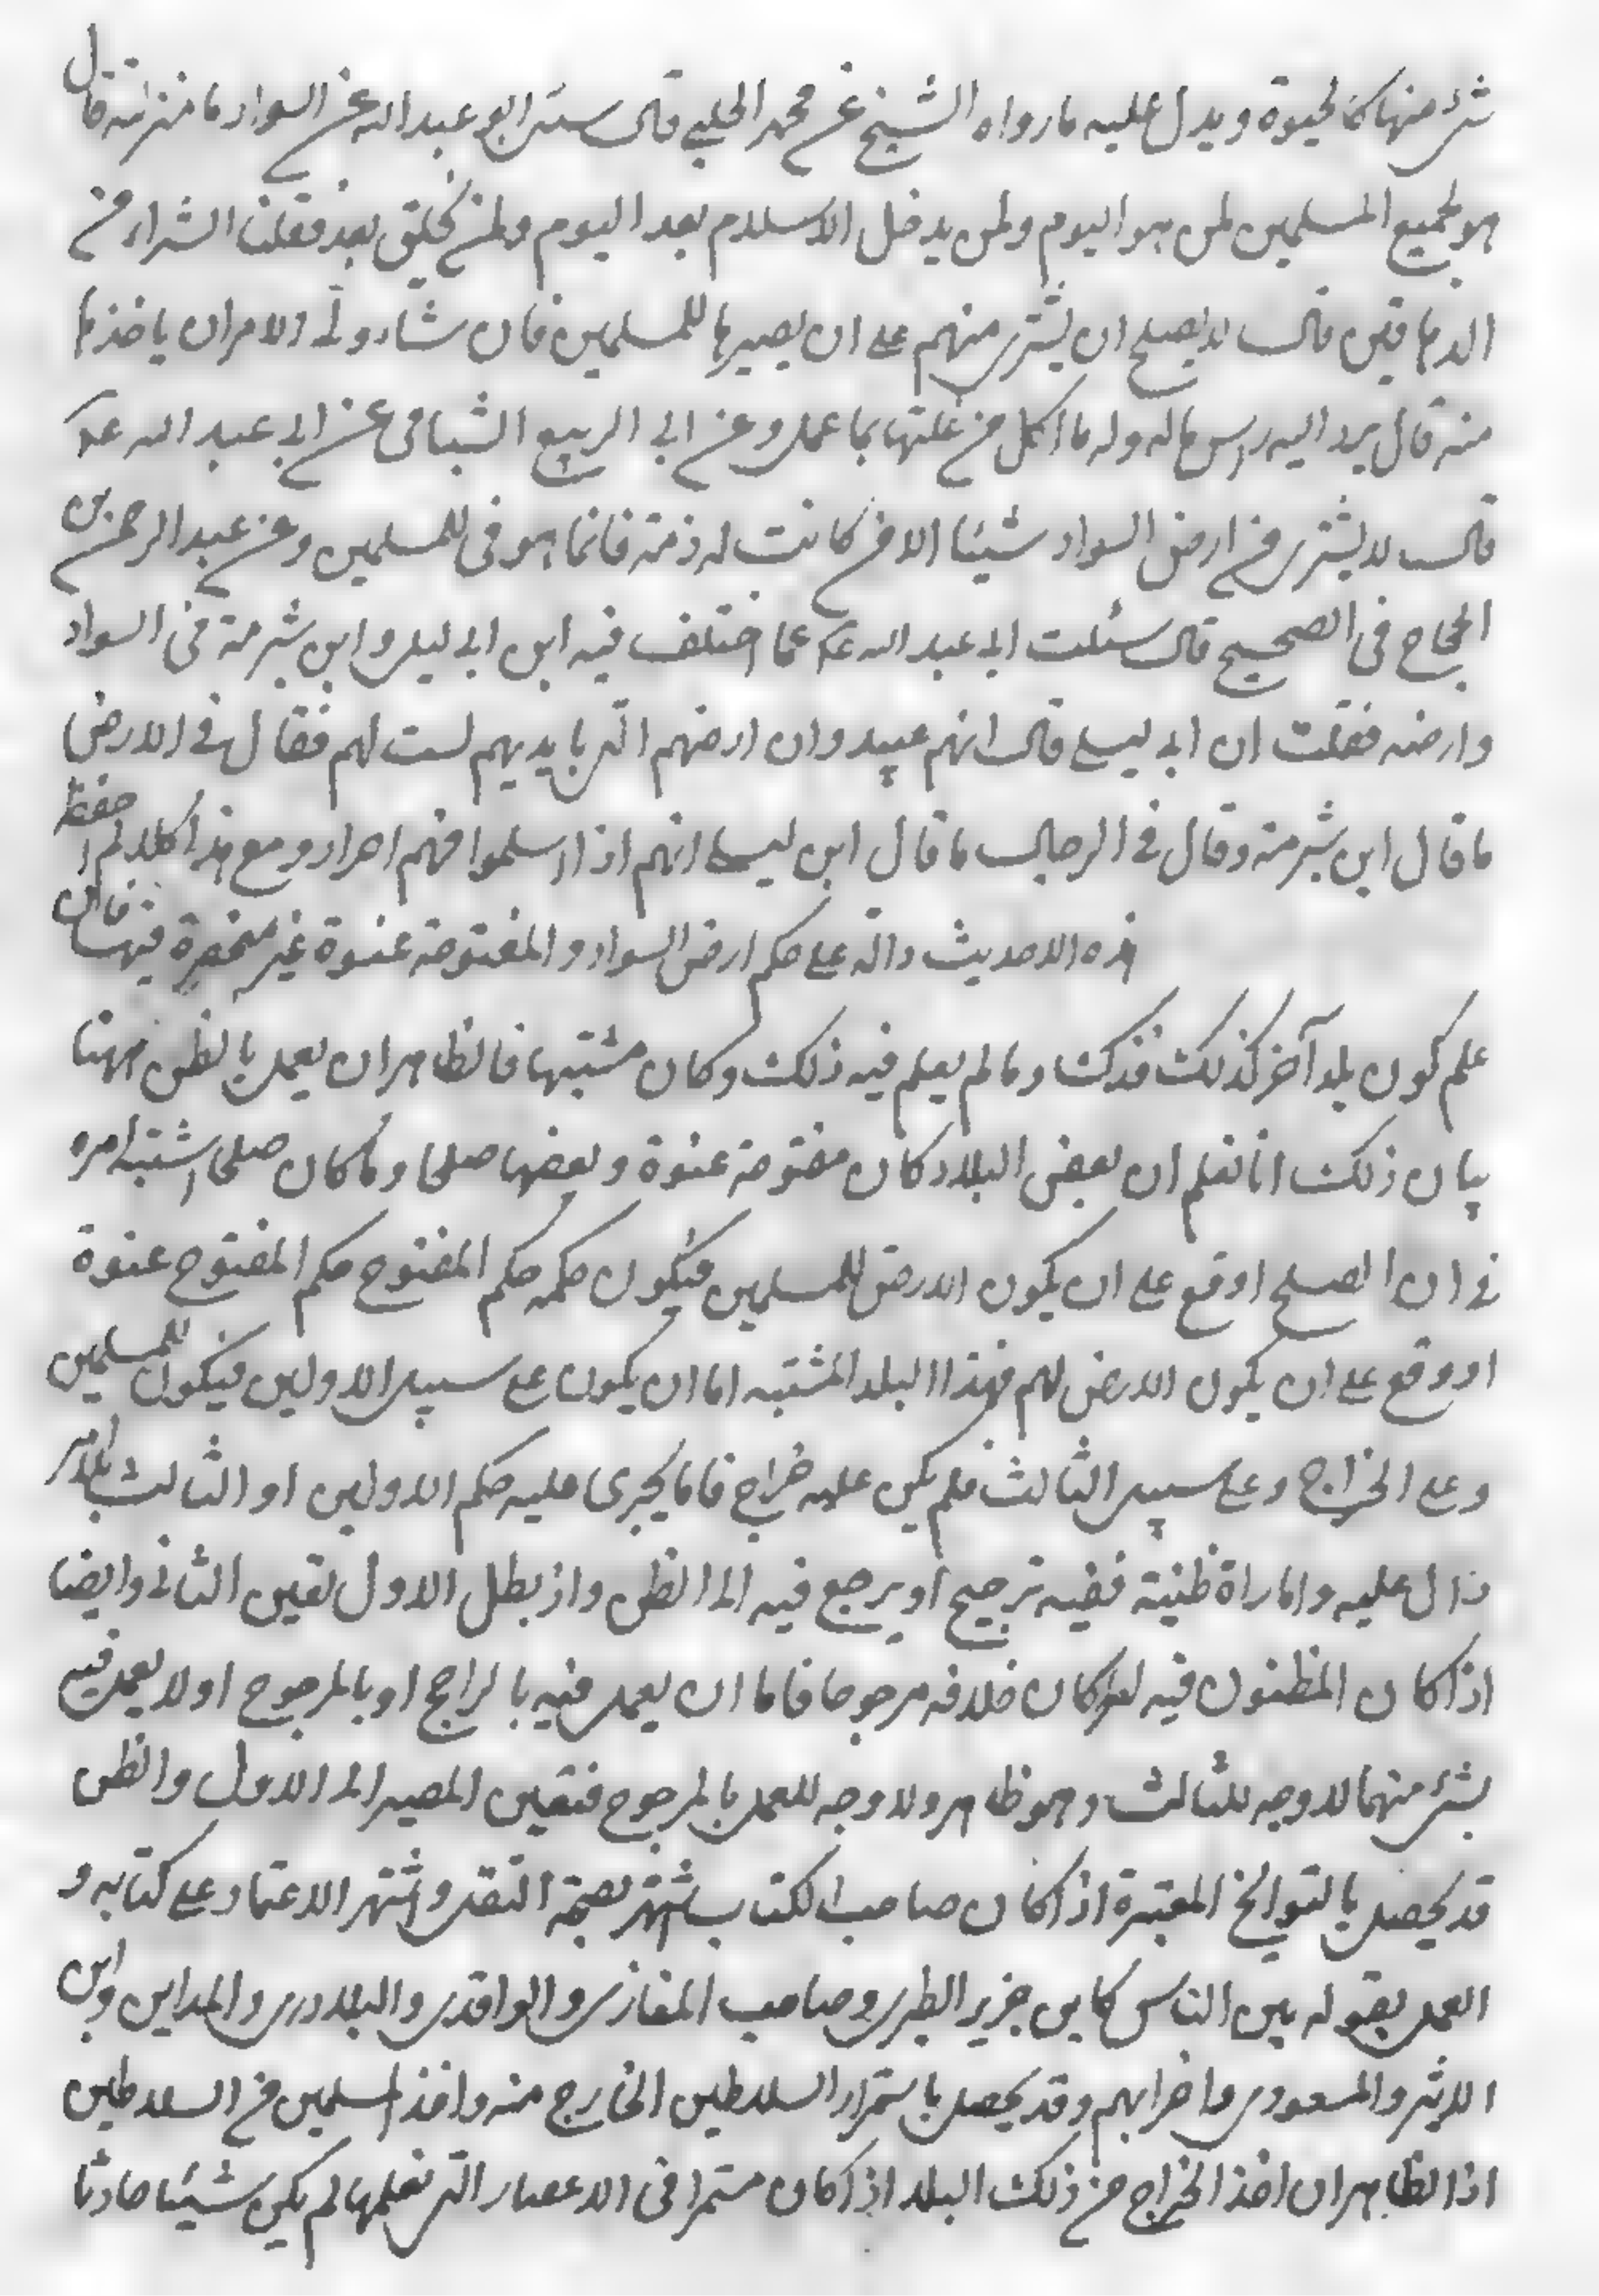 شئ منها كالحيوة ويدل عليه ما رواه الشيخ عن محمد الحلبي قال سئل ابو عبد الله عن السواد ما منزلته قال
هو لجميع المسلمين لمن هو اليوم ولمن يدخل الاسلام بعد اليوم ولمن يخلق بعد فقلنا الشراء من
الدهاقين قال لا يصلح ان يشتري منهم على ان يصيرها للمسلمين فان شاء ولي الامر ان ياخذها
منه قال يرد اليه راس ماله وله ما اكل من غلتها بما عمل وعن ابي الربيع الشامي عن ابي عبد الله ع
قال لا يشتري من ارض السواد شيئا الا من كانت له ذمة فانما هو في للمسلمين وعن عبد الرحمن بن
الحجاج في الصحيح قال سئلت ابي عبد الله ع عما اختلف فيه ابن ابي ليلى وابن شبرمة في السواد
وارضه فقلت ان ابي ليلى قال انهم عبيد وان ارضهم التي بايديهم لست لهم فقال في الارض
ما قال ابن شبرمة وقال في الرجال ما قال ابن ليلى انهم اذا اسلموا فهم احرار ومع هذا كلام لم احفظه
هذه الاحديث دالة على حكم ارض السواد والمفتوحة عنوة غير منحصرة فيها فان
علم كون بلد آخر كذلك فذك وما لم يعلم فيه ذلك وكان مشتبها فالظاهر ان يعمل بالظن ههنا
بيان ذلك انا نعلم ان بعض البلاد كان مفتوحة عنوة وبعضها صلحا وما كان صلحا اشتبه امره
في ان الصلح اوقع على ان يكون الارض للمسلمين فيكون حكمه حكم المفتوح حكم المفتوح عنوة
او وقع على ان يكون الارض لهم فهذا البلد المشتبه اما ان يكون على سبيل الاولين فيكون للمسلمين
وعلى الخراج وعلى سبيل الثالث فلم يكن عليه خراج فاما يجرى عليه حكم الاولين او الثالث بلا امر
دال عليه واماراة ظنية ففيه ترجيح او يرجع فيه الى الظن واذ بطل الاول تعين الثاني وايضا
اذا كان المظنون فيه كان خلافه مرجوحا فاما ان يعمل فيه بالراجح او بالمرجوح او لا يعمل فيه
بشئ منهما لا وجه للثالث وهو ظاهر ولا وجه للعمل بالمرجوح فتعين المصير الى الاول والظن
قد يحصل بالتواريخ المعتبرة اذا كان صاحب الكتاب اشتهر بصحة النقل واشتهر الاعتماد على كتابه و
العمل بقوله بين الناس كابن جرير الطبري وصاحب المغازي والواقدي والبلاذري والمداين وابن
الاثير والمسعودي واضرابهم وقد يحصل باستمرار السلاطين الخارج منه واخذ المسلمين من السلاطين
اذ الظاهر ان اخذ الخراج من ذلك البلد اذا كان مستمرا في الاعصار التي نعلمها لم يكن شيئا حادثا